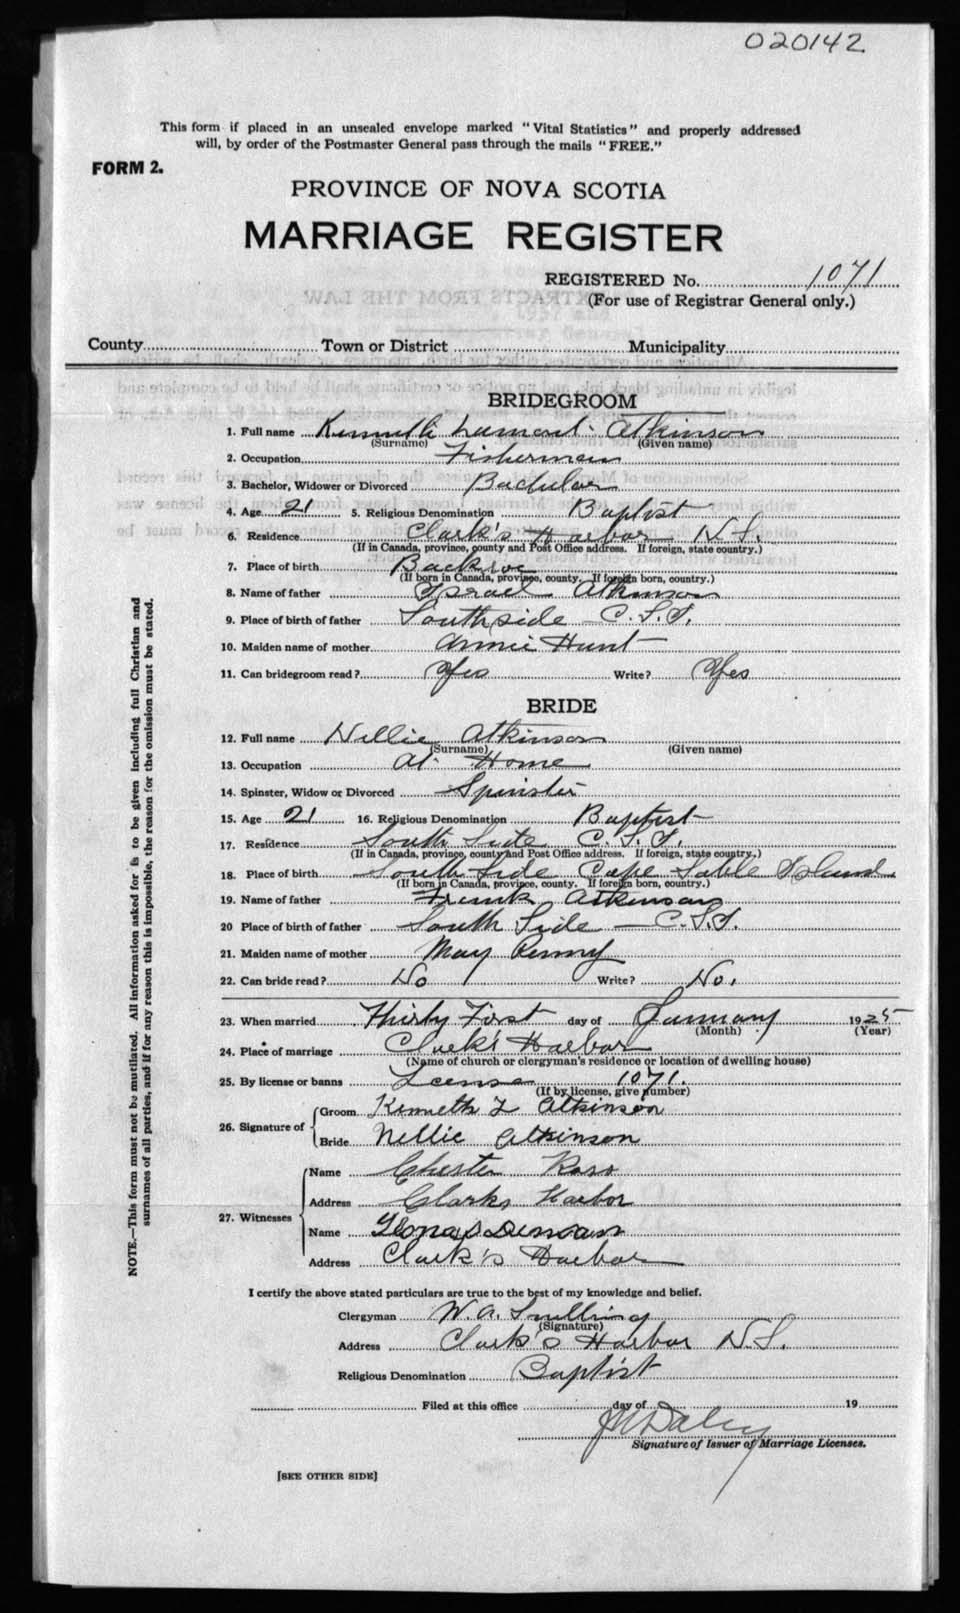 020142
This form if placed in an unsealed envelope marked "Vital Statistics" and properly addressed
will, by order of the Postmaster General pass through the mails "FREE."
FORM 2.
PROVINCE OF NOVA SCOTIA
MARRIAGE REGISTER
REGISTERED No. 1071
(For use of Registrar General only.)
County Town or District Municipality
BRIDEGROOM
1. Full name Kenneth Lamont Atkinson
(Surname) (Given name)
2. Occupation Fisherman
3. Bachelor, Widower or Divorced Bachelor
4. Age 21 5. Religious Denomination Baptist
6. Residence Clark's Harbor N.S.
(If in Canada, province, county and Post Office address. If foreign, state country.)
7. Place of birth
(If born in Canada, province, county. If foreign born, country.)
8. Name of father Israel Atkinson
9. Place of birth of father Southside C.S.I.
10. Maiden name of mother Annie Hunt
11. Can bridegroom read? Yes Write? Yes
BRIDE
12. Full name Nellie Atkinson
(Surname) (Given name)
13. Occupation At Home
14. Spinster, Widow or Divorced Spinster
15. Age 21 16. Religious Denomination Baptist
17. Residence South Side C.S.I.
(If in Canada, province, county and Post Office address. If foreign, state country.)
18. Place of birth South Side Cape Sable Island
(If born in Canada, province, county. If foreign born, country.)
19. Name of father Frank Atkinson
20 Place of birth of father South Side — C.S.I.
21. Maiden name of mother May Penny
22. Can bride read? No Write? No.
23. When married Thirty First day of January 1925
(Month) (Year)
24. Place of marriage Clark's Harbor
(Name of church or clergyman's residence or location of dwelling house)
25. By license or banns License 1071.
(If by license, give number)
26. Signature of
Groom Kenneth L Atkinson
Bride Nellie Atkinson
27. Witnesses
Name Chester Ross
Address Clarks Harbor
Name Duncan
Address Clark's Harbor
I certify the above stated particulars are true to the best of my knowledge and belief.
Clergyman W. A. Snelling
(Signature)
Address Clark's Harbor N.S.
Religious Denomination Baptist
Filed at this office day of 19
Daley
Signature of Issuer of Marriage Licenses.
[SEE OTHER SIDE]
NOTE.—This form must not be mutilated. All information asked for is to be given including full Christian and
surnames of all parties, and if for any reason this is impossible, the reason for the omission must be stated.